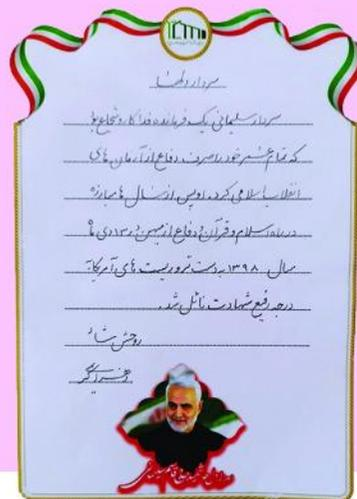 سردار دلها
سردار سلیمانی یک فرمانده فداکار و شجاع بود
که تمام عمر خود را صرف دفاع از آرمان های
انقلاب اسلامی کرد. او پس از سال ها مبارزه
در راه اسلام و قرآن و دفاع از میهن در ۱۳ دی ماه
سال ۱۳۹۸ به دست تروریست های آمریکا به
درجه رفیع شهادت نائل شد.
روحش شاد